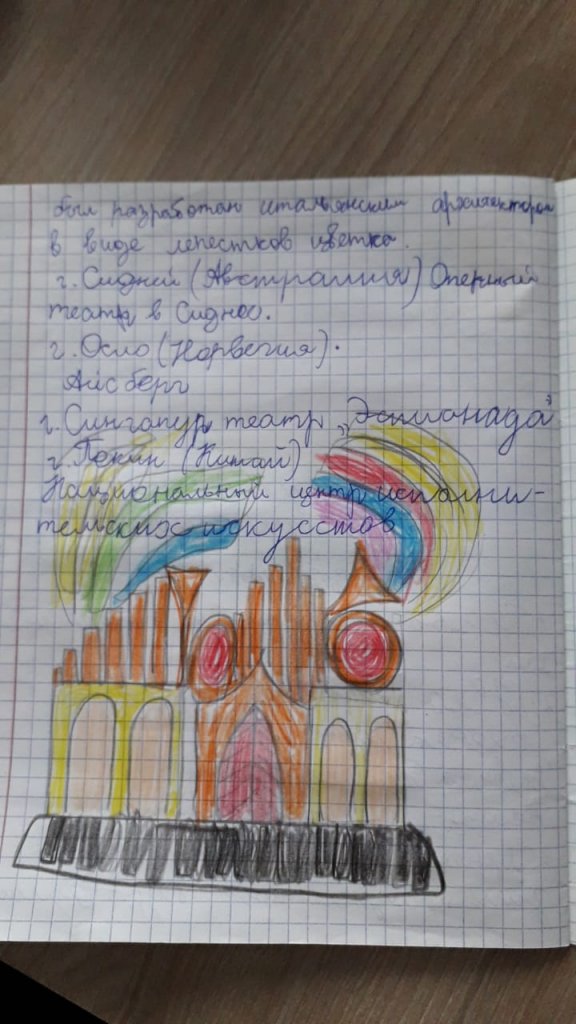 был разработан итальянским архитектором
в виде лепестков цветка.
г. Сидней (Австралия) Оперный
театр в Сиднее.
г. Осло (Норвегия).
Айсберг
г. Сингапур театр „Эспланада"
г. Пекин (Китай)
Национальный центр исполни-
тельских искусств